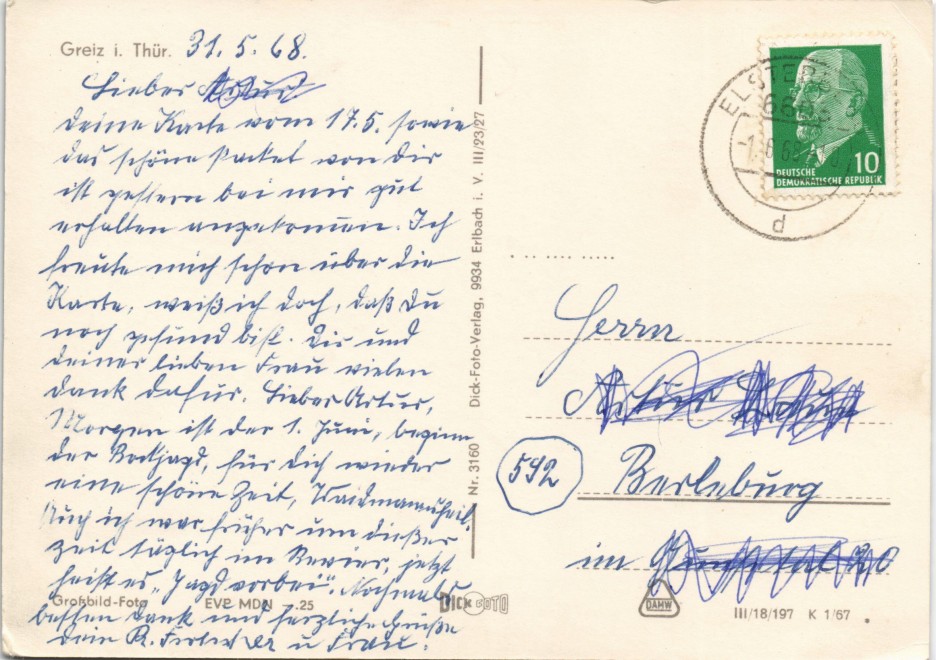 Greiz i. Thür. 31. 5. 68.
Lieber
deine Karte vom 17.5. sowie
das schöne Packet von Dir
ist gestern bei mir gut
erhalten angekommen. Ich
freute mich schon über die
Karte, weiß ich doch, daß Du
noch gesund bist. Dir und
deiner lieben Frau vielen
Dank dafür. Lieber Artur,
Morgen ist der 1. Juni, beginn
der Bockjagd, für Dich wieder
eine schöne Zeit, Waidmannsheil.
Auch ich war früher um dießer
Zeit täglich im Revier, jetzt
heist es „Jagd vorbei". Nochmals
besten Dank und herzliche Grüße
Dein R. u Frau.
Großbild-Foto EVP MDN -.25
Nr. 3160 Dick-Foto-Verlag, 9934 Erlbach i. V. III/23/27
DICK FOTO
ELSTERB
660
-1.6.68
d
10
DEUTSCHE
DEMOKRATISCHE REPUBLIK
Herrn
Artur
592
Berleburg
im 20
DAMW
III/18/197 K 1/67